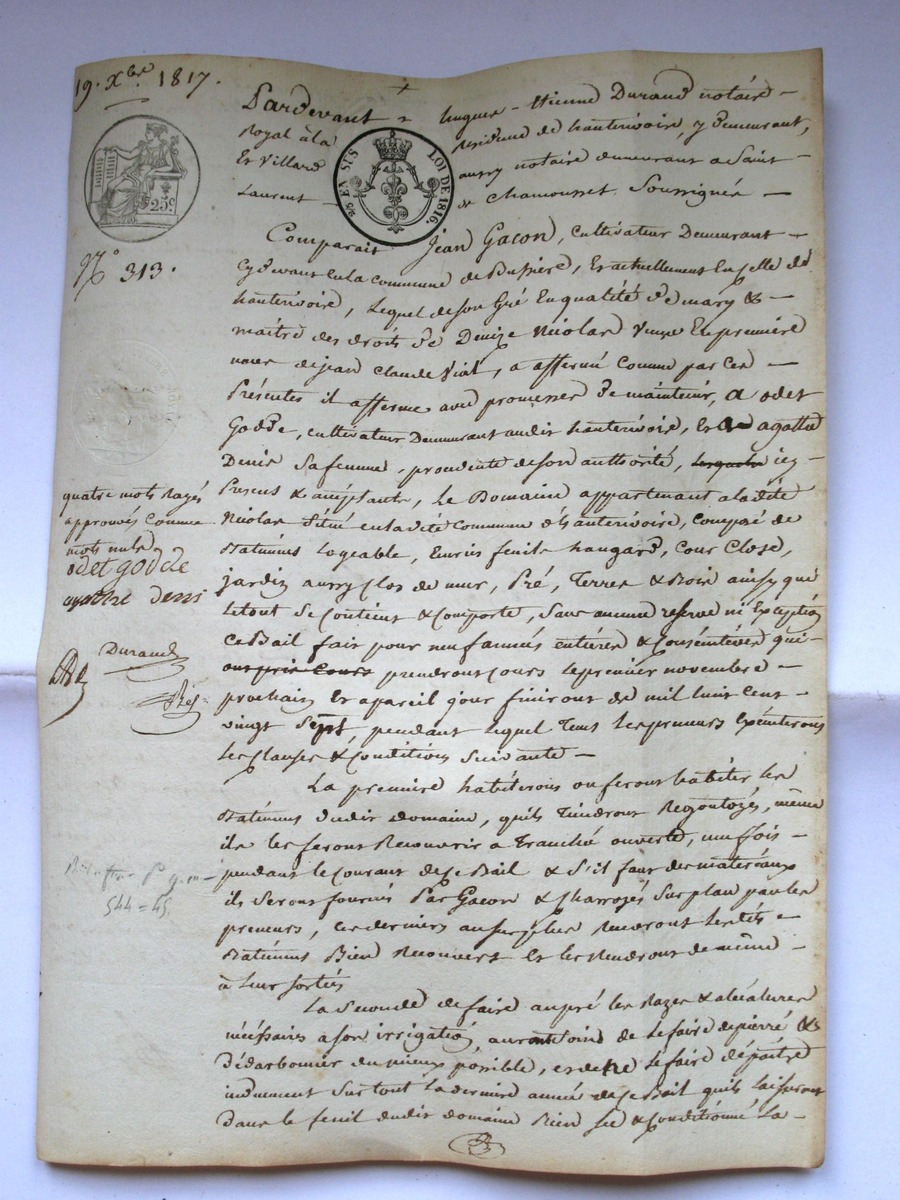 19. Xbre 1817.
Pardevant hugue-Etienne Durand notaire
Royal à la résidence de hauterivoire, y demeurant,
Et Villard aussy notaire demeurant a Saint
Laurent de Chamousset Soussignés
25 EN SUS LOI DE 1816.
25c.
N° 313.
Comparait Jean Gacon, Cultivateur Demeurant
Cydevant en la commune de Bussiere, Et actuellement En celle de
hauterivoire, Lequel de son Gré En qualité de mary &
maitre des droits de Denize Nicolas Veuve En première
noces de jean Claude Viat, a affermé Comme par Ces
Présentes il afferme avec promesses de maintenir, a odet
Godde, cultivateur Demeurant audit hauterivoire, Et a agathe
Denis Sa femme, procédente de son authorité, lesquels icy
Présens & acceptants, Le Domaine appartenant a ladite
Nicolas Situé en ladite Commune d'hauterivoire, Composé de
Batimens Logeable, Ecuries fenils hangard, Cour Close,
jardin aussy Clos de mur, Pré, Terres & Bois ainsy que
le tout Se Contient & Comporte, Sans aucune reserve ni Exception
Ce Bail fait pour neuf années entières & Consécutives qui
ont pris Cours prendront cours le premier novembre
prochain Et a pareil jour finiront de mil huit Cent
vingt Sept, pendant Lequel Tems Les preneurs Exécuterons
Les Clauses & Conditions Suivante
quatre mots Rayés
approuvés Comme
mots nuls
odet godde
agathe denis
Durand
La premiere habiterons ou ferons habiter les
Batimens dudit domaine, quils Tiendront Regoutoyés, même
ils les ferons Recouvrir a Tranché ouverte, une fois
pendant le Courant de ce Bail & S'il faut des materiaux
ils Serons fournis Par Gacon & Charroyés Sur place par les
preneurs, Ces derniers au surplus Recevront Lesdits
Batimens Bien Recouvert Et les Rendrons de même
à Leur Sorties
544=45
La Seconde de faire au pré les Razes &
nécéssaires a son irrigation, auront Soins de le faire depierré &
du mieux possible, et de ne le faire dépaitre
nullement Sur tout la derniere année de ce Bail quils Laisseront
dans le fenil dudit domaine Bien Sec & Conditionné La